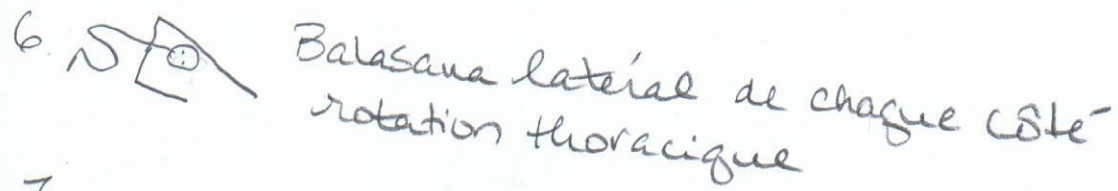 6. Balasana latéral de chaque côté
rotation thoracique
7